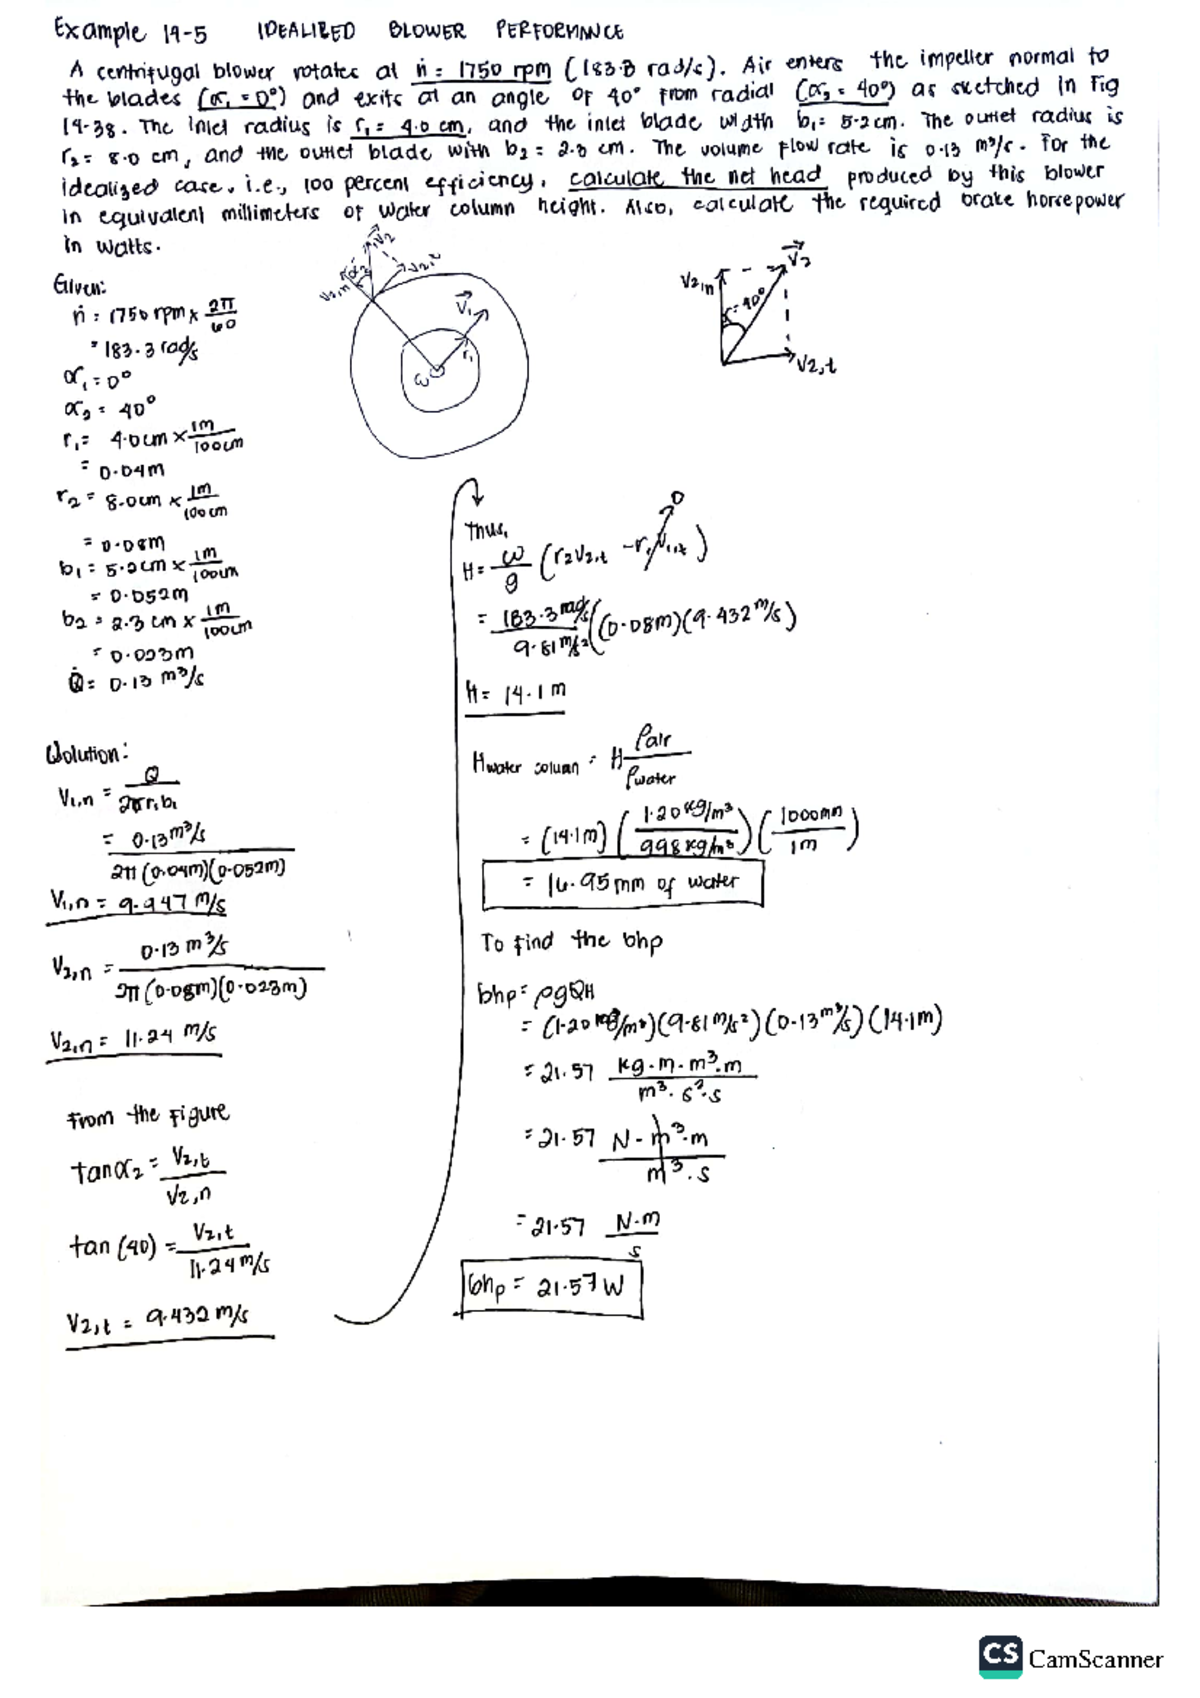 Example 14-5 IDEALIZED BLOWER PERFORMANCE
A centrifugal blower rotates at ṅ = 1750 rpm (183.3 rad/s). Air enters the impeller normal to
the blades (α₁ = 0°) and exits at an angle of 40° from radial (α₂ = 40°) as sketched in Fig
14-38. The inlet radius is r₁ = 4.0 cm, and the inlet blade width b₁ = 5.2 cm. The outlet radius is
r₂ = 8.0 cm, and the outlet blade with b₂ = 2.3 cm. The volume flow rate is 0.13 m³/s. For the
idealized case, i.e., 100 percent efficiency, calculate the net head produced by this blower
in equivalent millimeters of water column height. Also, calculate the required brake horsepower
in watts.
V₂,n α₂ V₂ V₂,t
V₁
r₁
ω
V₂,n V₂
α = 40°
V₂,t
Given:
ṅ = 1750 rpm x 2π/60
= 183.3 rad/s
α₁ = 0°
α₂ = 40°
r₁ = 4.0cm x 1m/100cm
= 0.04m
r₂ = 8.0cm x 1m/100cm
= 0.08m
b₁ = 5.2cm x 1m/100cm
= 0.052m
b₂ = 2.3 cm x 1m/100cm
= 0.023m
Q̇ = 0.13 m³/s
Solution:
V₁,n = Q/2πr₁b₁
= 0.13m³/s / 2π(0.04m)(0.052m)
V₁,n = 9.947 m/s
V₂,n = 0.13 m³/s / 2π(0.08m)(0.023m)
V₂,n = 11.24 m/s
From the Figure
tanα₂ = V₂,t/V₂,n
tan (40) = V₂,t/11.24m/s
V₂,t = 9.432 m/s
Thus,
H = ω/g (r₂V₂,t - r₁V₁,t) 0
= 183.3 rad/s / 9.81 m/s² ((0.08m)(9.432 m/s)
H = 14.1 m
Hwater column = H ρair/ρwater
= (14.1m) (1.20 kg/m³ / 998 kg/m³) (1000mm/1m)
= 16.95 mm of water
To find the bhp
bhp = ρgQH
= (1.20 kg/m³)(9.81 m/s²)(0.13 m³/s)(14.1m)
= 21.57 kg.m.m³.m / m³.s².s
= 21.57 N-m³.m / m³.s
= 21.57 N.m / s
bhp = 21.57 W
CS CamScanner